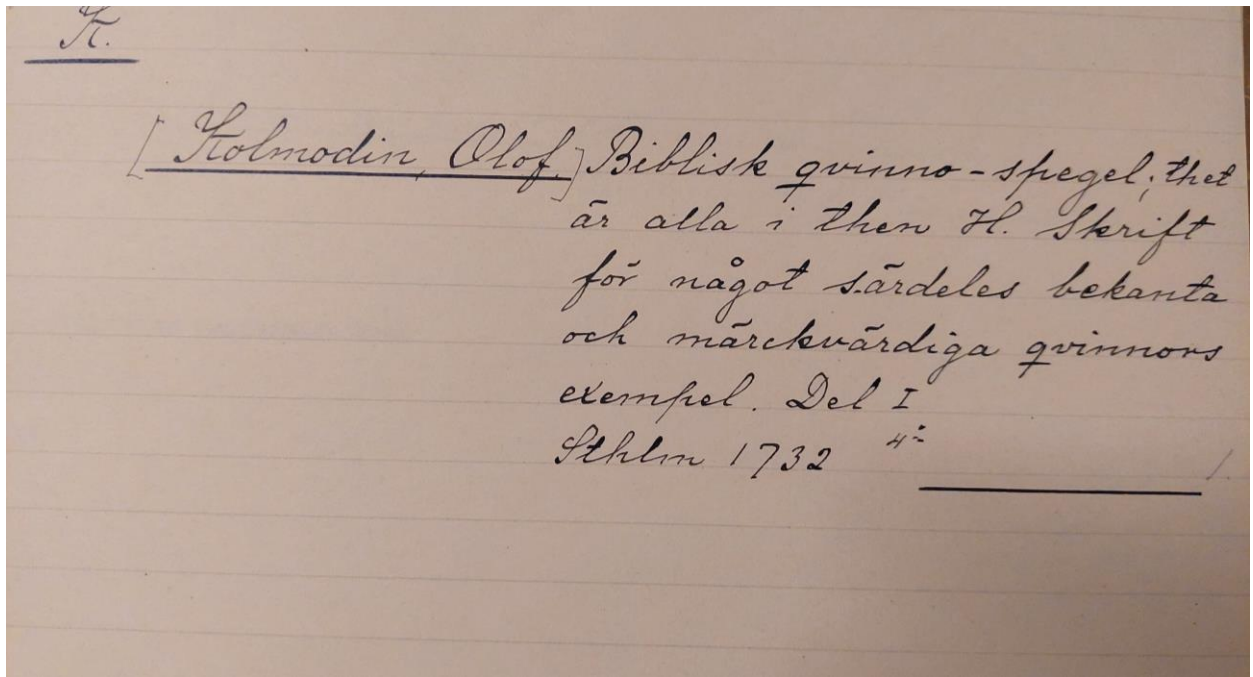 K.
[Kolmodin, Olof.] Biblisk qvinno-spegel; thet
är alla i then H. Skrift
för något särdeles bekanta
och märckvärdiga qvinnors
exempel. Del I
Sthlm 1732 4:o